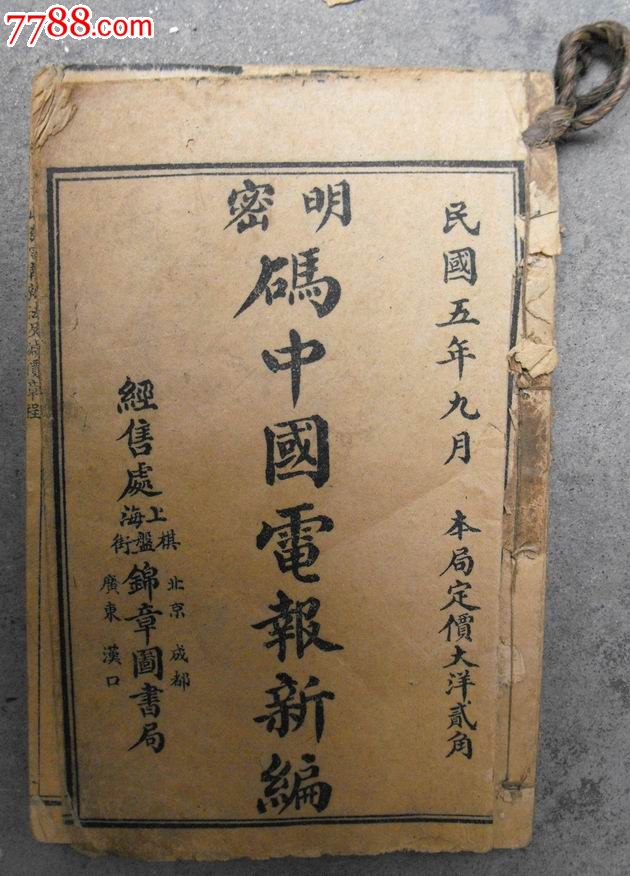 7788.com
民國五年九月 本局定價大洋貳角
明密
碼中國電報新編
經售處
上海
棋盤街
錦章圖書局
北京 成都
廣東 漢口
價章程